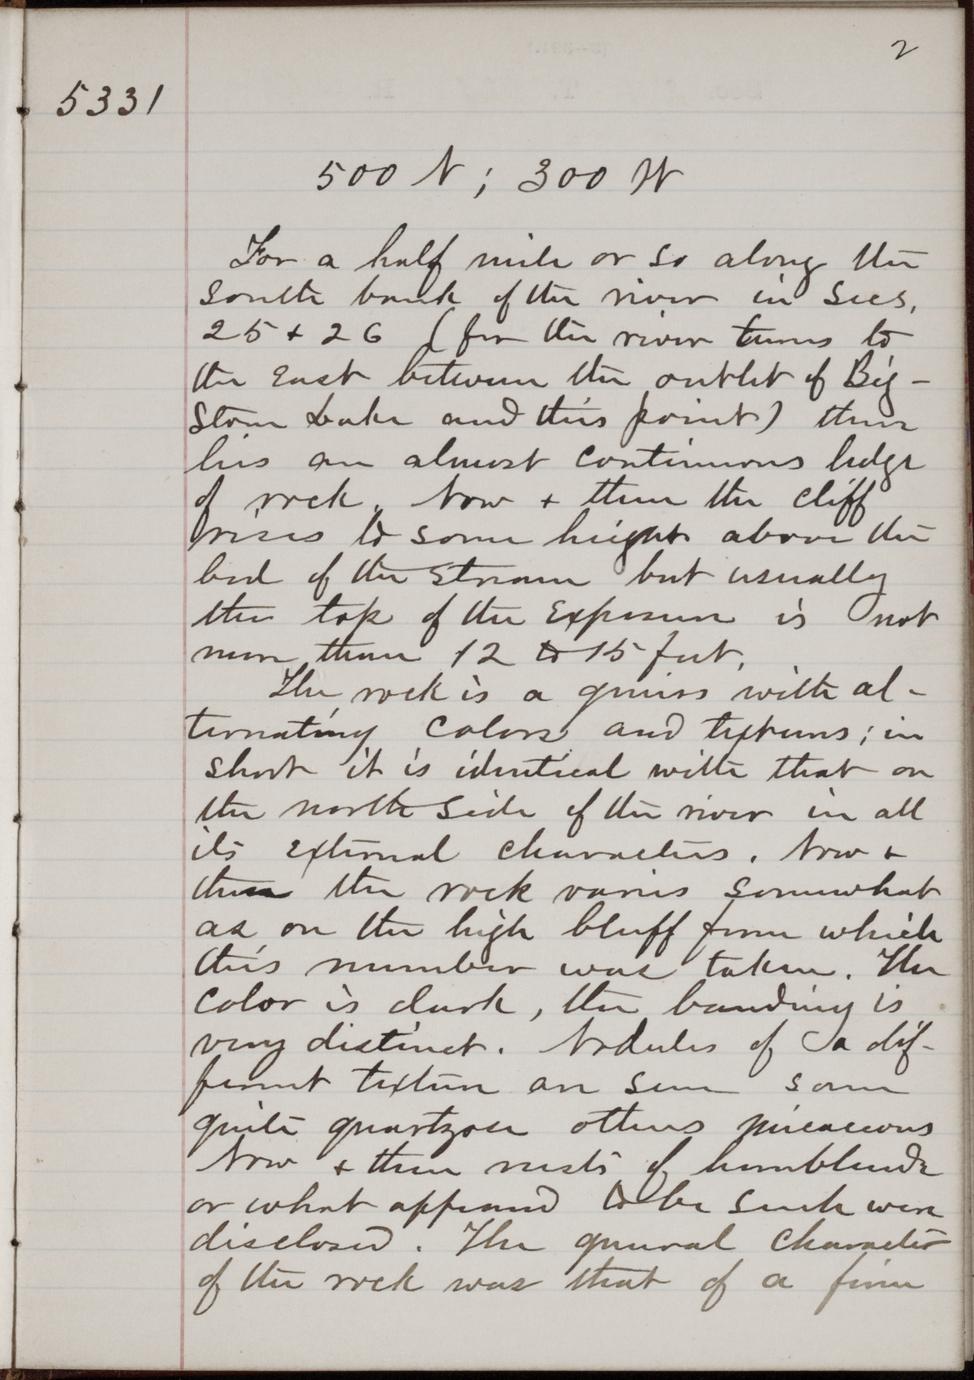 2
5331
500 N; 300 W
For a half mile or so along the
south bank of the river in Secs,
25 + 26 (for the river turns to
the East between the outlet of Big-
Stone Lake and this point) there
lies an almost continuous ledge
of rock. Now + then the cliff
rises to some height above the
bed of the Stream but usually
the top of the Exposure is not
more than 12 to 15 feet.
The rock is a gneiss with al-
ternating colors and textures; in
short it is identical with that on
the north side of the river in all
its external characters. Now +
then the rock varies somewhat
as on the high bluff from which
this number was taken. The
color is dark, the banding is
very distinct. Nodules of a dif-
ferent texture are seen some
quite quartzose others micaceous
Now + then nests of hornblende
or what appeared to be such were
disclosed. The general character
of the rock was that of a fine